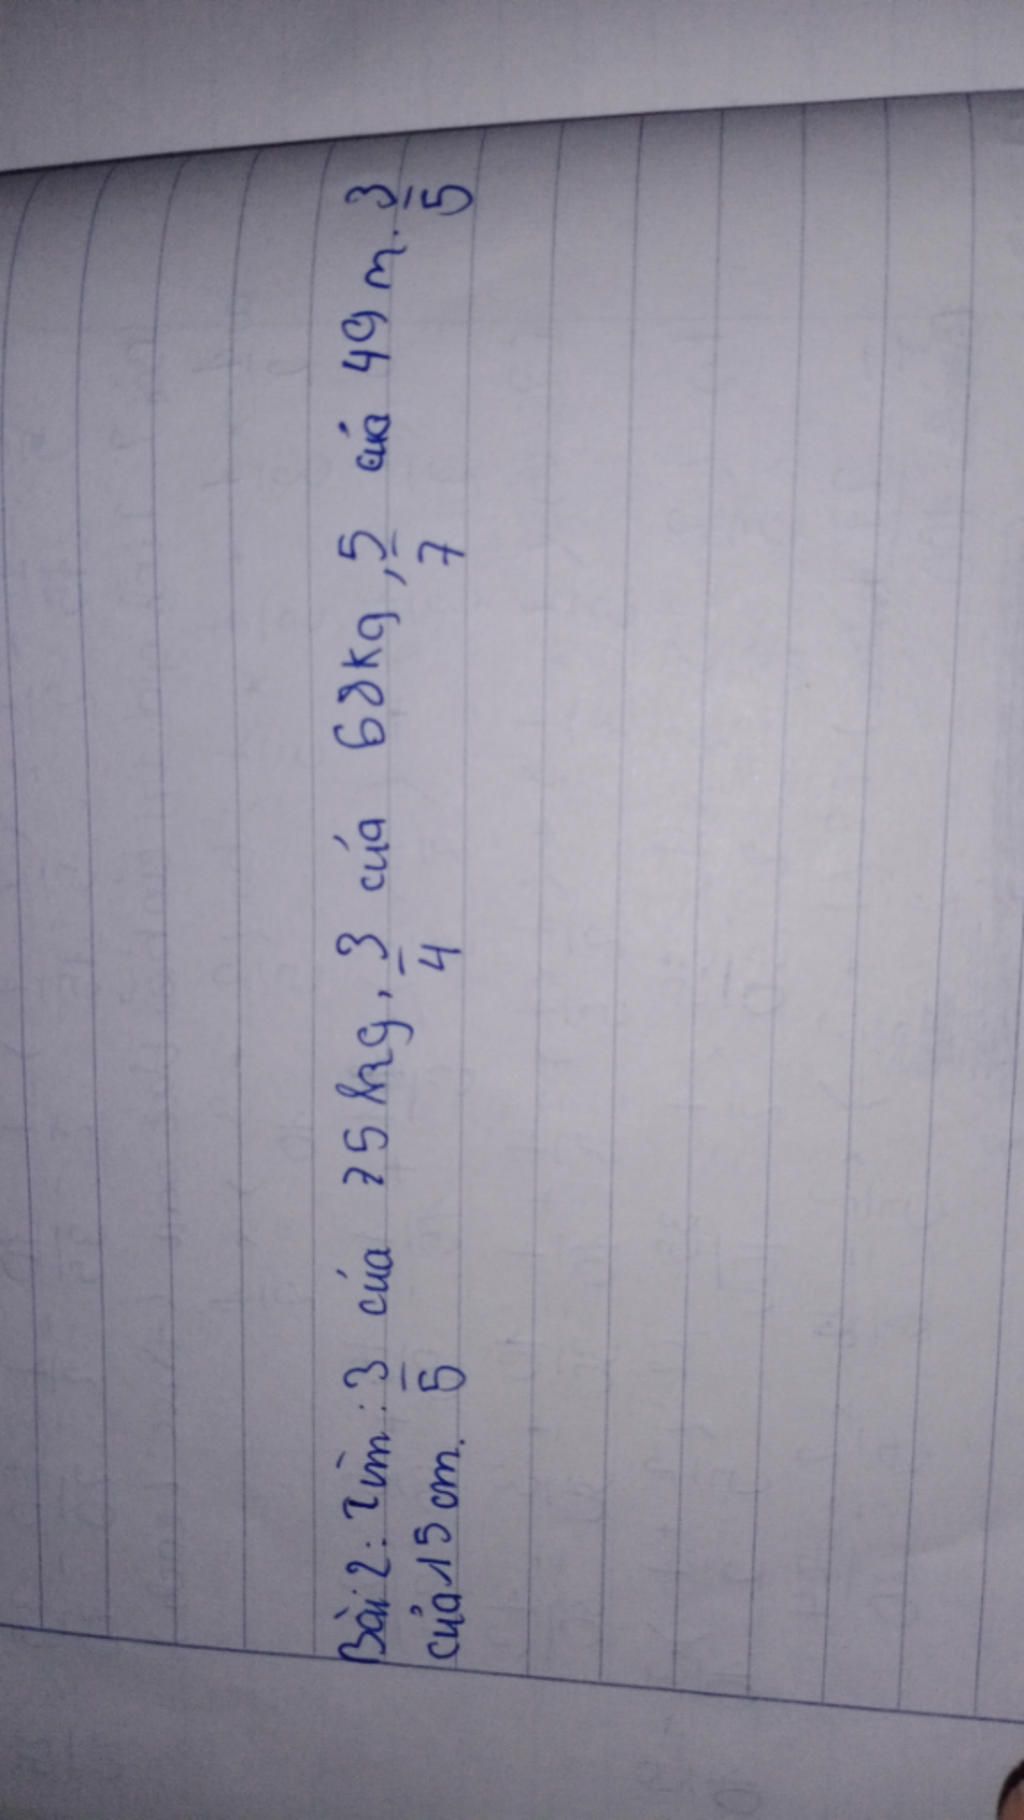 Bài 2: Tìm: 3/5 của 75 kg, 3/4 của 68kg, 5/7 của 49 m. 3/5
của 15 cm.